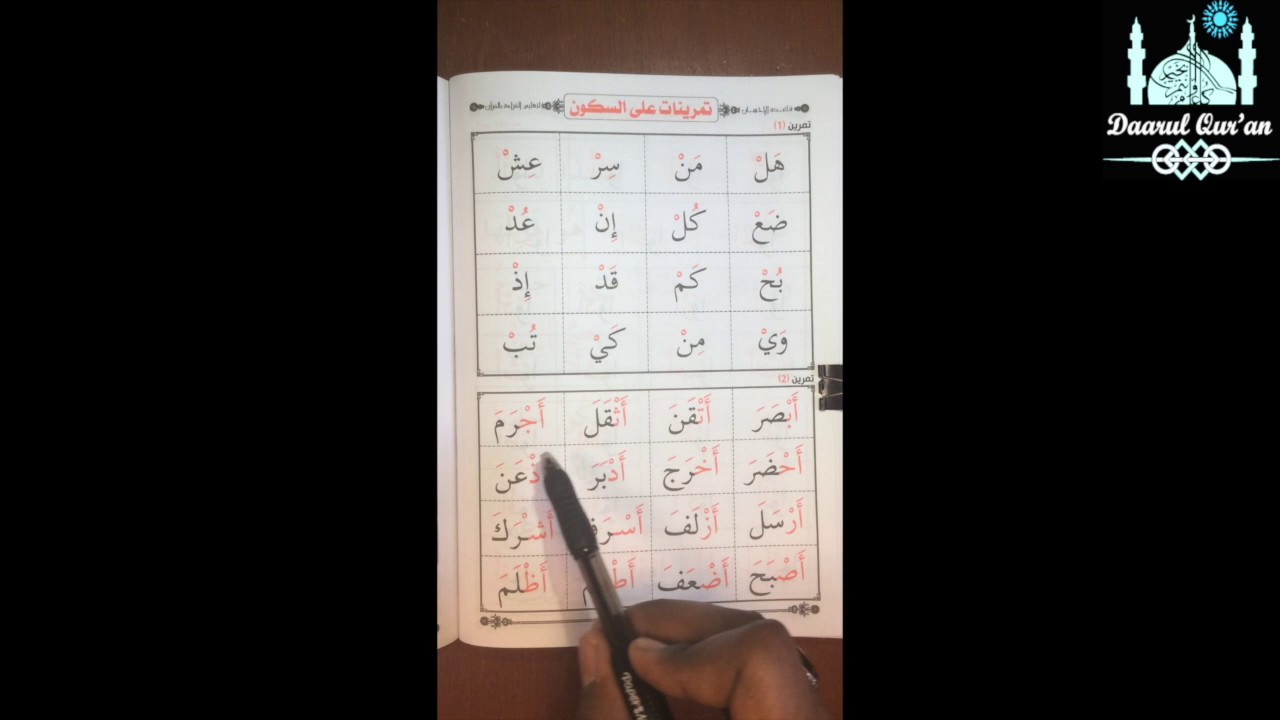 Daarul Qur'an
قاعدة الإحسان تمرينات على السكون لتعليم القراءة بالقرآن
تمرين (1)
هَلْ مَنْ سِرْ عِشْ
ضَعْ كُلْ إِنْ عُدْ
بُحْ كَمْ قَدْ إِذْ
وَيْ مِنْ كَيْ تُبْ
تمرين (2)
أَبْصَرَ أَتْقَنَ أَثْقَلَ أَجْرَمَ
أَحْضَرَ أَخْرَجَ أَدْبَرَ
أَرْسَلَ أَزْلَفَ أَشْرَكَ
أَصْبَحَ أَضْعَفَ أَظْلَمَ